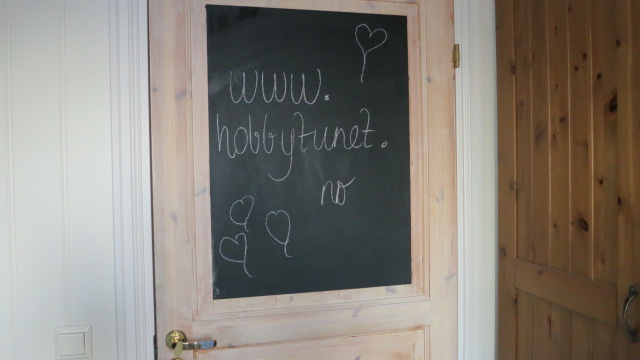 www.
hobbytunet.
no